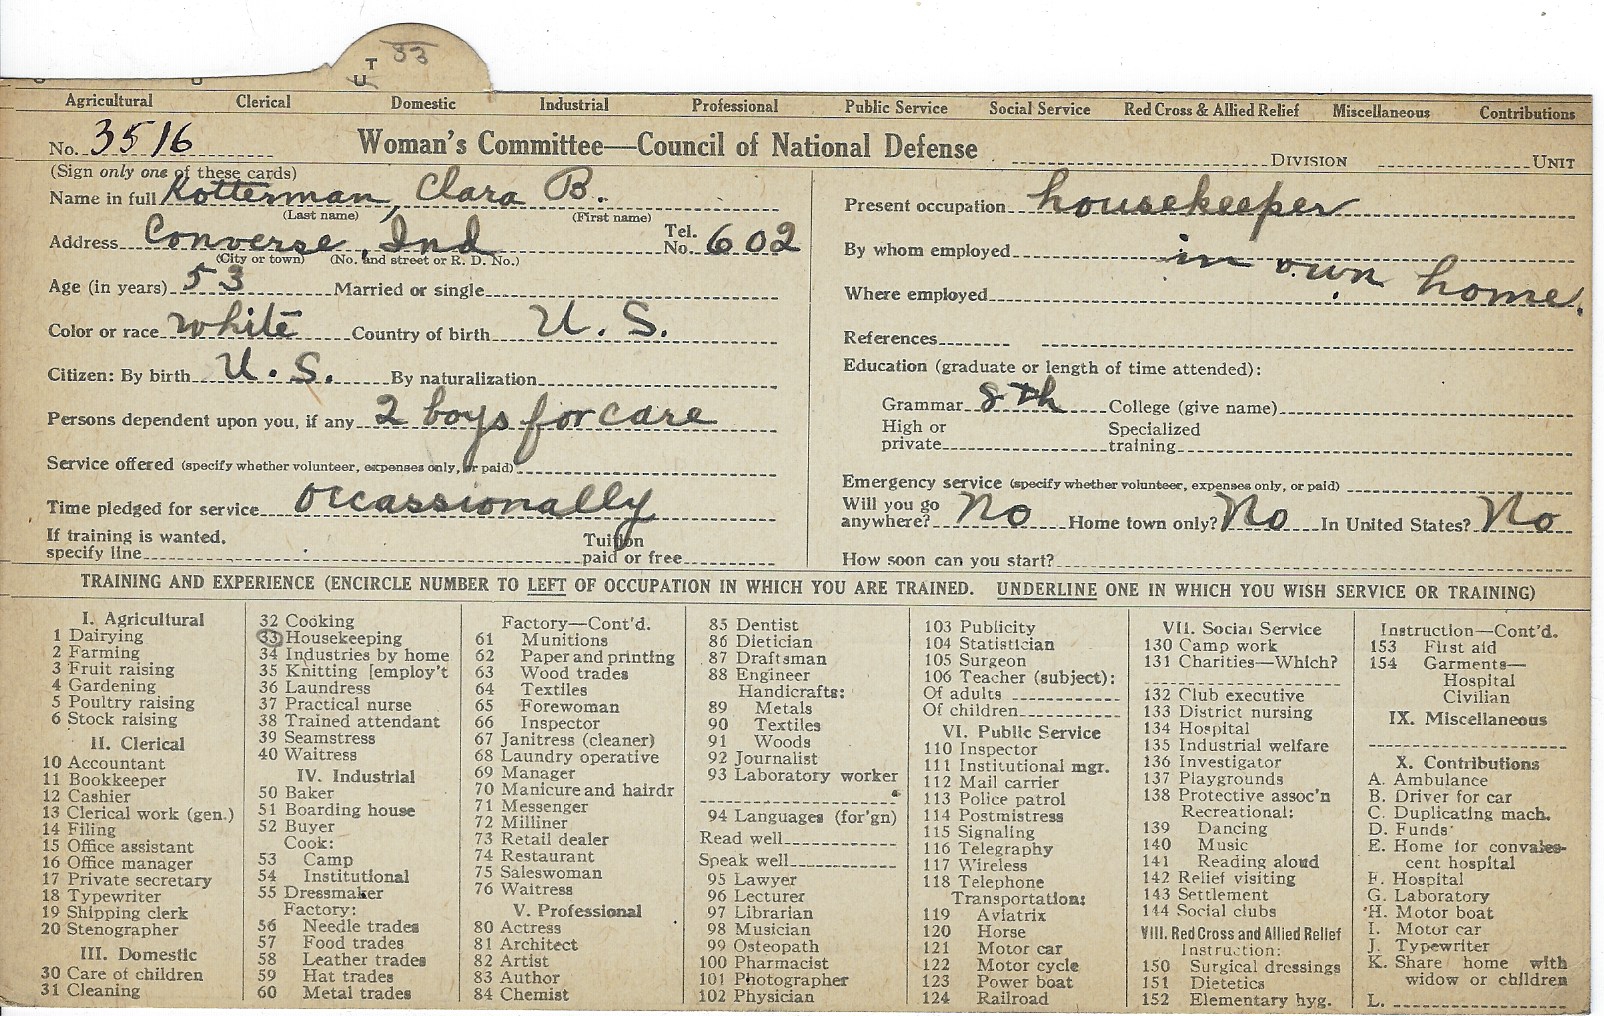 33
T
U
Agricultural Clerical Domestic Industrial Professional Public Service Social Service Red Cross & Allied Relief Miscellaneous Contributions
No. 3516 Woman's Committee—Council of National Defense DIVISION UNIT
(Sign only one of these cards)
Name in full Kotterman, Clara B.
(Last name) (First name)
Address Converse, Ind Tel. No. 602
(City or town) (No. and street or R. D. No.)
Age (in years) 53 Married or single
Color or race white Country of birth U. S.
Citizen: By birth U. S. By naturalization
Persons dependent upon you, if any 2 boys for care
Service offered (specify whether volunteer, expenses only, or paid)
Time pledged for service occassionally
If training is wanted, specify line Tuition paid or free
Present occupation housekeeper
By whom employed in own home.
Where employed
References
Education (graduate or length of time attended):
Grammar 8th College (give name)
High or private Specialized training
Emergency service (specify whether volunteer, expenses only, or paid)
Will you go anywhere? No Home town only? No In United States? No
How soon can you start?
TRAINING AND EXPERIENCE (ENCIRCLE NUMBER TO LEFT OF OCCUPATION IN WHICH YOU ARE TRAINED. UNDERLINE ONE IN WHICH YOU WISH SERVICE OR TRAINING)
I. Agricultural
1 Dairying
2 Farming
3 Fruit raising
4 Gardening
5 Poultry raising
6 Stock raising
II. Clerical
10 Accountant
11 Bookkeeper
12 Cashier
13 Clerical work (gen.)
14 Filing
15 Office assistant
16 Office manager
17 Private secretary
18 Typewriter
19 Shipping clerk
20 Stenographer
III. Domestic
30 Care of children
31 Cleaning
32 Cooking
33 Housekeeping
34 Industries by home
35 Knitting [employ't
36 Laundress
37 Practical nurse
38 Trained attendant
39 Seamstress
40 Waitress
IV. Industrial
50 Baker
51 Boarding house
52 Buyer
Cook:
53 Camp
54 Institutional
55 Dressmaker
Factory:
56 Needle trades
57 Food trades
58 Leather trades
59 Hat trades
60 Metal trades
Factory—Cont'd.
61 Munitions
62 Paper and printing
63 Wood trades
64 Textiles
65 Forewoman
66 Inspector
67 Janitress (cleaner)
68 Laundry operative
69 Manager
70 Manicure and hairdr
71 Messenger
72 Milliner
73 Retail dealer
74 Restaurant
75 Saleswoman
76 Waitress
V. Professional
80 Actress
81 Architect
82 Artist
83 Author
84 Chemist
85 Dentist
86 Dietician
87 Draftsman
88 Engineer
Handicrafts:
89 Metals
90 Textiles
91 Woods
92 Journalist
93 Laboratory worker
94 Languages (for'gn)
Read well
Speak well
95 Lawyer
96 Lecturer
97 Librarian
98 Musician
99 Osteopath
100 Pharmacist
101 Photographer
102 Physician
103 Publicity
104 Statistician
105 Surgeon
106 Teacher (subject):
Of adults
Of children
VI. Public Service
110 Inspector
111 Institutional mgr.
112 Mail carrier
113 Police patrol
114 Postmistress
115 Signaling
116 Telegraphy
117 Wireless
118 Telephone
Transportation:
119 Aviatrix
120 Horse
121 Motor car
122 Motor cycle
123 Power boat
124 Railroad
VII. Social Service
130 Camp work
131 Charities—Which?
132 Club executive
133 District nursing
134 Hospital
135 Industrial welfare
136 Investigator
137 Playgrounds
138 Protective assoc'n
Recreational:
139 Dancing
140 Music
141 Reading aloud
142 Relief visiting
143 Settlement
144 Social clubs
VIII. Red Cross and Allied Relief
Instruction:
150 Surgical dressings
151 Dietetics
152 Elementary hyg.
Instruction—Cont'd.
153 First aid
154 Garments—
Hospital
Civilian
IX. Miscellaneous
X. Contributions
A. Ambulance
B. Driver for car
C. Duplicating mach.
D. Funds
E. Home for convales-
cent hospital
F. Hospital
G. Laboratory
H. Motor boat
I. Motor car
J. Typewriter
K. Share home with
widow or children
L.